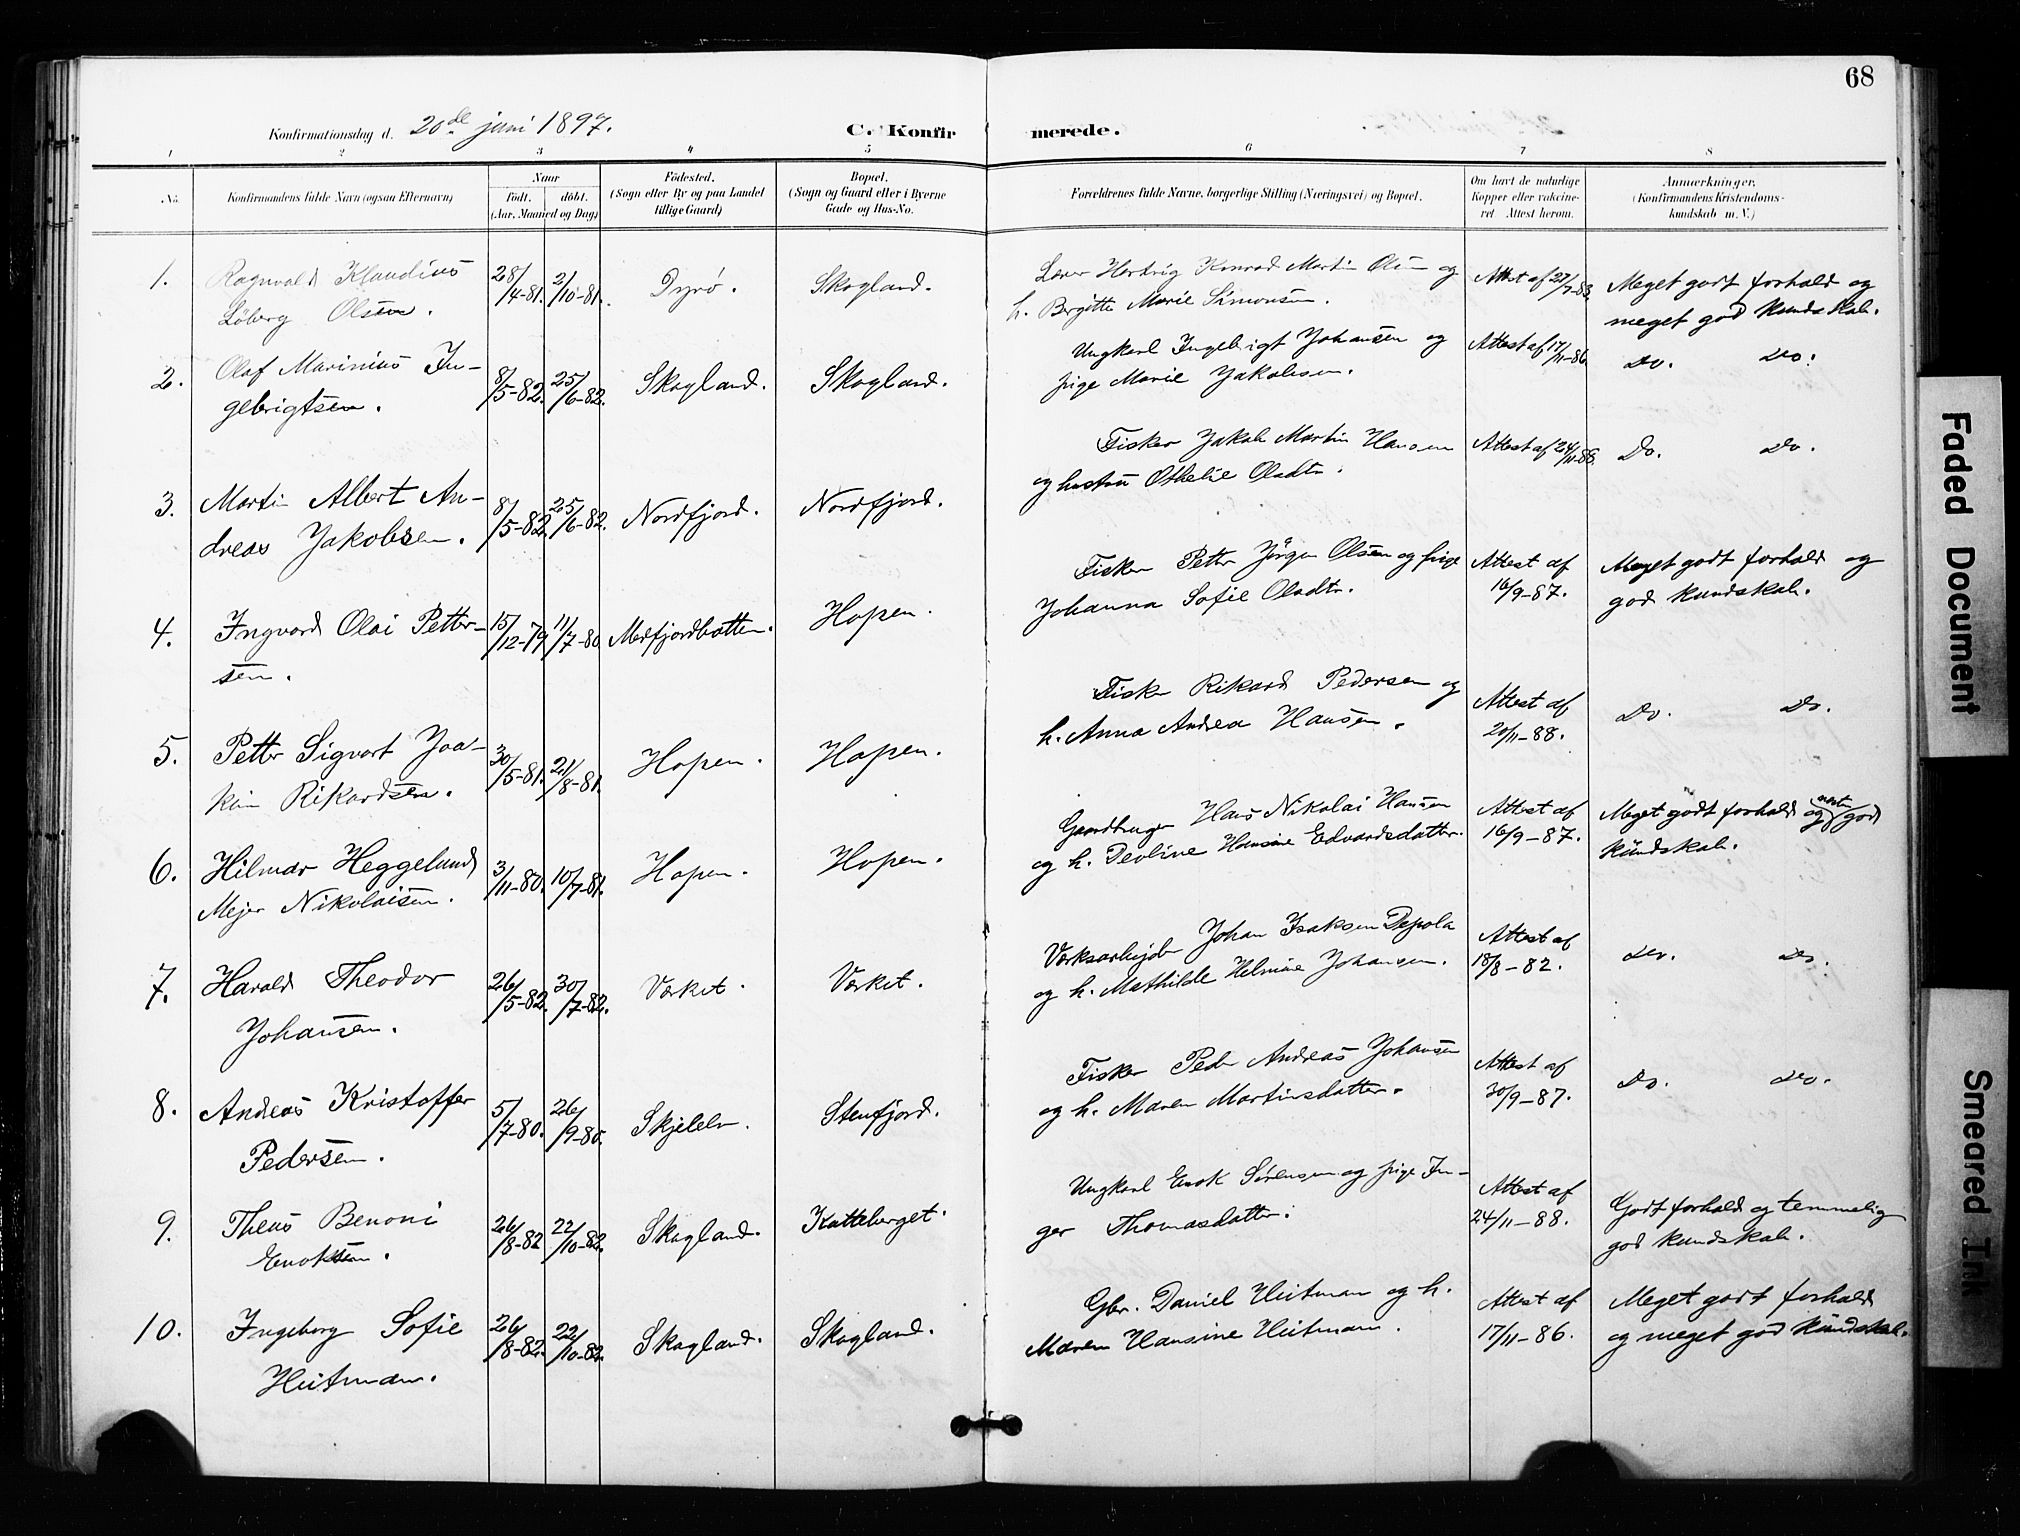 68
Konfirmationsdag d. 20de juni 1897. C. Konfirmerede.
1 2 3 4 5 6 7 8
No.
Konfirmandens fulde Navn (ogsaa Efternavn)
Naar
født. døbt.
(Aar, Maaned og Dag)
Födested.
(Sogn eller By og paa Landet
tillige Gaard)
Bopæl.
(Sogn og Gaard eller i Byerne
Gade og Hus-No.
Forældrenes fulde Navne, borgerlige Stilling (Næringsvei) og Bopæl.
Om havt de naturlige
Kopper eller vakcine-
ret Attest herom.
Anmærkninger.
(Konfirmandens Kristendoms-
kundskab m. V.)
1. Ragnvald Klaudius
Löberg Olsen.
28/4-81. 2/10-81. Dyrø. Skogland.
Lærer Hartvig Konrad Martin Olsen og
h. Birgitte Marie Simonsen.
Attest af 27/7-83.
Meget godt forhold og
meget god kundskab.
2. Olaf Marinius In-
gebrigtsen.
8/5-82. 25/6-82. Skogland. Skogland.
Ungkarl Ingebrigt Johansen og
pige Marie Jakobsen.
Attest af 17/11-86.
Do. Do.
3. Martin Albert An-
dreas Jakobsen.
8/5-82. 25/6-82. Nordfjord. Nordfjord.
Fisker Jakob Martin Hansen
og hustru Othelie Olsdtr.
Attest af 24/11-88.
Do. Do.
4. Ingvard Olai Petter-
sen.
15/12-79 11/7-80. Medfjordbotten. Hopen.
Fisker Petter Jörgen Olsen og pige
Johanna Sofie Olsdtr.
Attest af
16/9-87.
Meget godt forhold og
god kundskab.
5. Petter Sigvart Joa-
kim Rikardsen.
30/5-81. 21/8-81. Hopen. Hopen.
Fisker Rikard Pedersen og
h. Anna Andrea Hansen.
Attest af
20/11-88.
Do. Do.
6. Hilmar Heggelund
Mejer Nikolaisen.
3/11-80. 10/7-81. Hopen. Hopen.
Gaardbruger Hans Nikolai Hansen
og h. Pauline Hansine Edvardsdatter.
Attest af
16/9-87.
Meget godt forhold og god
kundskab.
7. Harald Theodor
Johansen.
26/5-82. 30/7-82. Værket. Værket.
Værksarbejder Johan Isaksen
og h. Mathilde Helmine Johansen.
Attest af
18/8-82.
Do. Do.
8. Andreas Kristoffer
Pedersen.
5/7-80. 26/9-80. Skjelelv. Stenfjord.
Fisker Peder Andreas Johansen
og h. Maren Martinsdatter.
Attest af
30/9-87.
Do. Do.
9. Theus Benoni
Enoksen.
26/8-82 22/10-82. Skogland. Katteberget.
Ungkarl Enok Sørensen og pige In-
ger Thomasdatter.
Attest af
24/11-88.
Godt forhold og temmelig
god kundskab.
10. Ingeborg Sofie
Heitman.
26/8-82. 22/10-82. Skogland. Skogland.
Gbr. Daniel Heitman og h.
Maren Hansine Heitman.
Attest af
17/11-86.
Meget godt forhold
og meget god kundskab.
Faded Document
Smeared Ink